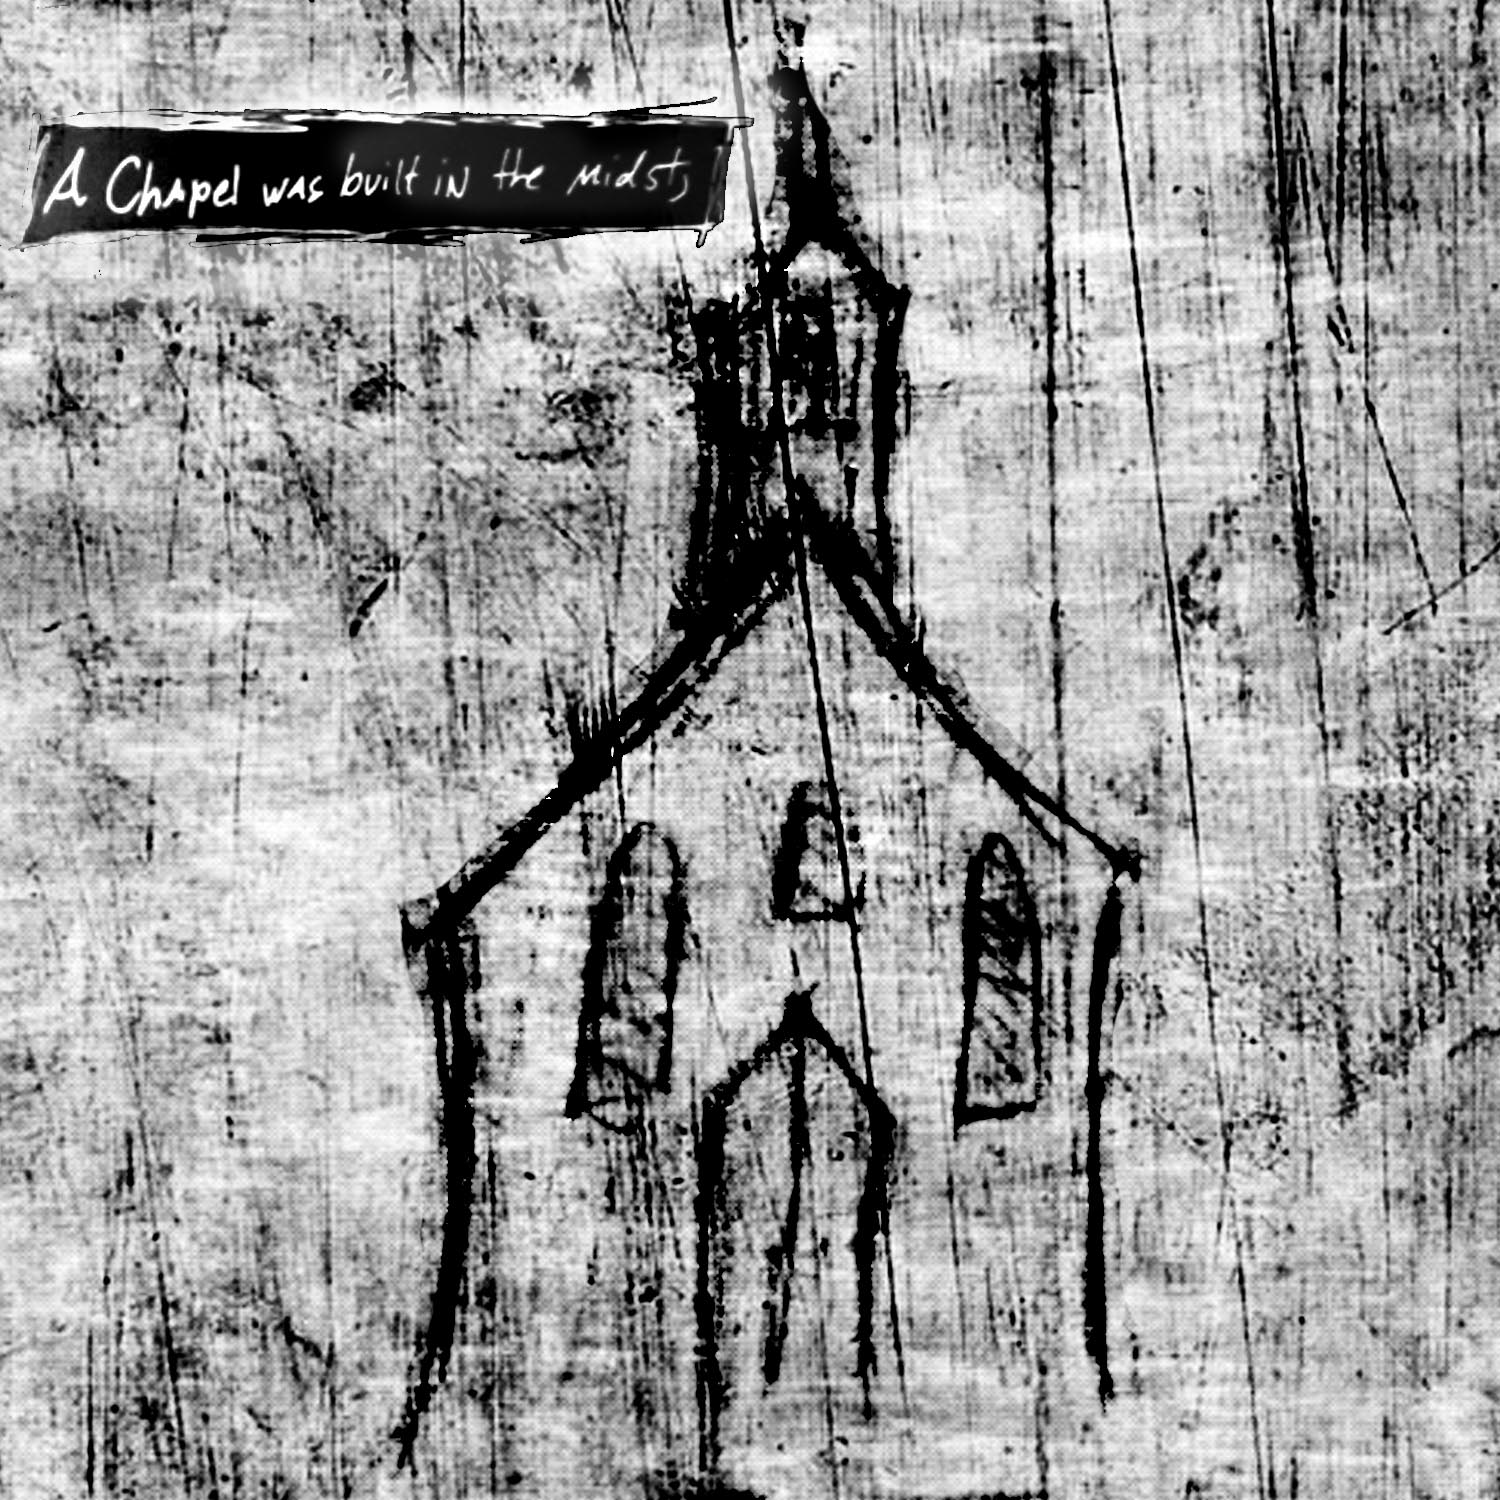 A Chapel was built in the midst,